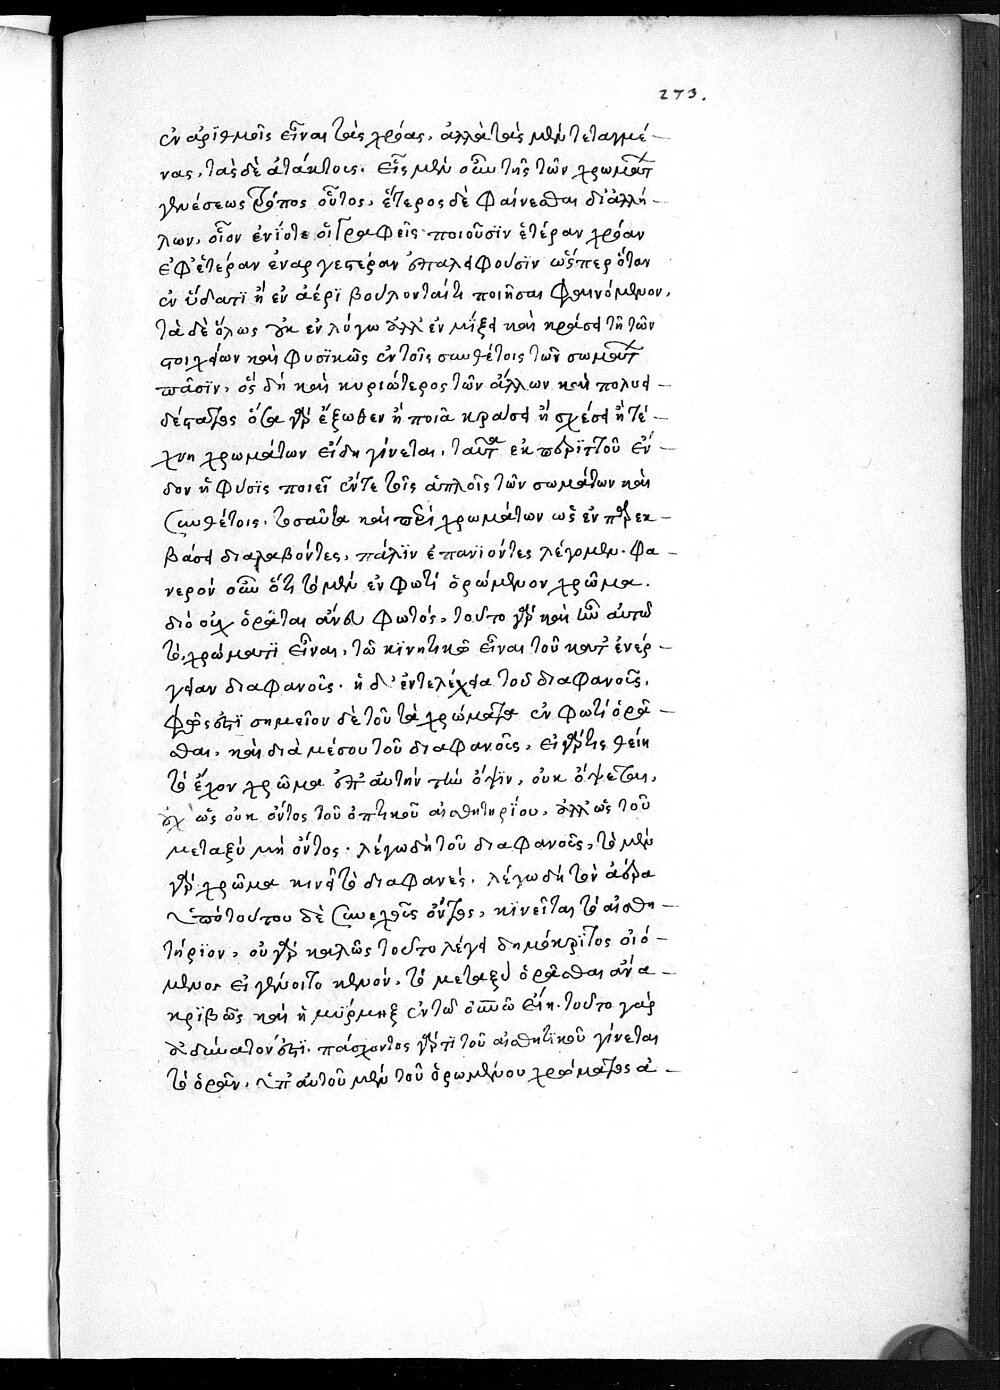 273.
ἐν ἀρϊθμοῖς εἶναι τὰς χρόας, ἀλλὰ τὰς μὲν τεταγμέ-
νας, τὰς δὲ ἀτάκτοις. εἷς μὲν οὖν τῆς τῶν χρωμάτ
γενέσεως τρόπος οὗτος, ἕτερος δὲ φαίνεσθαι δι' ἀλλή-
λων, οἷον ἐνίοτε οἱ γραφεῖς ποιοῦσϊν ἑτέραν χρόαν
ἐφ' ἑτέραν ἐναργεστέραν ἐπαλείφουσϊν ὥσπερ ὅταν
ἐν ὕδατϊ ἢ ἐν ἀέρϊ βούλονταί τι ποιῆσαι φαινόμενον,
τὰ δὲ ὅλως οὐκ ἐν λόγω ἀλλ' ἐν μίξει καὶ κράσει τῆ τῶν
στοιχείων καὶ φυσϊκῶς ἐν τοῖς συνθέτοις τῶν σωμάτ
πᾶσϊν, ὃς δὴ καὶ κυριώτερος τῶν ἄλλων καὶ πολυει-
δέστατος ὅσα γὰρ ἔξωθεν ἢ ποιὰ κράσει ἢ σχέσει ἢ τέ-
χνη χρωμάτων εἴδη γίνεται, ταῦτα ἐκ περϊττοῦ ἔν-
δον ἡ φύσϊς ποιεῖ ἔν τε τοῖς ἁπλοῖς τῶν σωμάτων καὶ
συνθέτοις. τοσαῦτα καὶ περὶ χρωμάτων ὡς ἐν παρεκ-
βάσει διαλαβόντες, πάλϊν ἐπανϊόντες λέγομεν. φα-
νερὸν οὖν ὅτι τὸ μὲν ἐν φωτὶ ὁρώμενον χρῶμα.
διὸ οὐχ ὁρᾶται ἄνευ φωτός, τοῦτο γὰρ καὶ ἦν αὐτῶ
τὸ χρώματϊ εἶναι, τῶ κϊνητικῶ εἶναι τοῦ κατ' ἐνέρ-
γειαν διαφανοῦς. ἡ δ' ἐντελέχεια τοῦ διαφανοῦς,
φῶς ἐστϊ σημεῖον δὲ τοῦ τὰ χρώματα ἐν φωτὶ ὁρᾶ-
σθαι, καὶ διὰ μέσου τοῦ διαφανοῦς, εἰ γάρ τις θείη
τὸ ἔχον χρῶμα ἐπ' αὐτὴν τὴν ὄψϊν, οὐκ ὄψεται,
οὐχ ὡς οὐκ ὄντος τοῦ ὀπτικοῦ αἰσθητηρίου, ἀλλ' ὡς τοῦ
μεταξὺ μὴ ὄντος. λέγω δὴ τοῦ διαφανοῦς, τὸ μὲν
γὰρ χρῶμα κινεῖ τὸ διαφανές, λέγω δὴ τὸν ἀέρα
ὑπὸ τούτου δὲ συνεχοῦς ὄντος, κϊνεῖται τὸ αἰσθη-
τήρϊον, οὐ γὰρ καλῶς τοῦτο λέγει δημόκρϊτος οἰό-
μενος εἰ γένοιτο κενόν, τὸ μεταξὺ ὁρᾶσθαι ἂν ἀ-
κρϊβῶς καὶ ἡ μύρμηξ ἐν τῶ οὐνῶ εἴη. τοῦτο γὰρ
ἀδύνατόν ἐστϊ. πάσχοντος γάρ τϊ τοῦ αἰσθητϊκοῦ γίνεται
τὸ ὁρᾶν, ὑπ' αὐτοῦ μὲν τοῦ ὁρωμένου χρώματος ἀ-